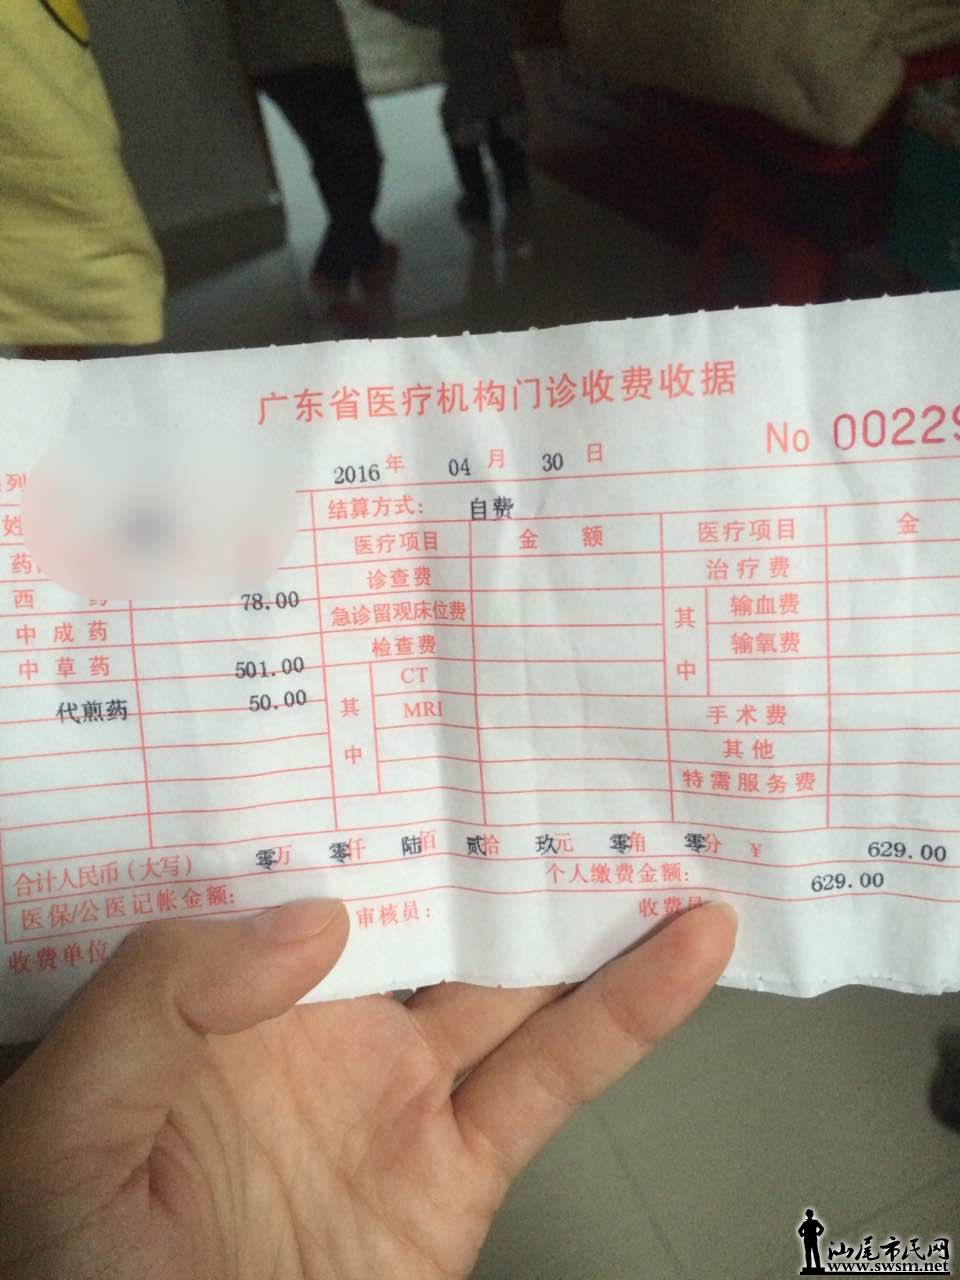 广东省医疗机构门诊收费收据
No 00229
列
2016 年 04 月 30 日
姓
结算方式: 自费
药
医疗项目 金 额 医疗项目 金
西 药 78.00 诊查费 治疗费
中成药 急诊留观床位费 其中 输血费
中草药 501.00 检查费 输氧费
代煎药 50.00 其中 CT
MRI 手术费
其他
特需服务费
合计人民币(大写) 零万 零仟 陆佰 贰拾 玖元 零角 零分 ¥ 629.00
医保/公医记帐金额: 个人缴费金额: 629.00
收费单位 审核员: 收费员
汕尾市民网
www.swsm.net